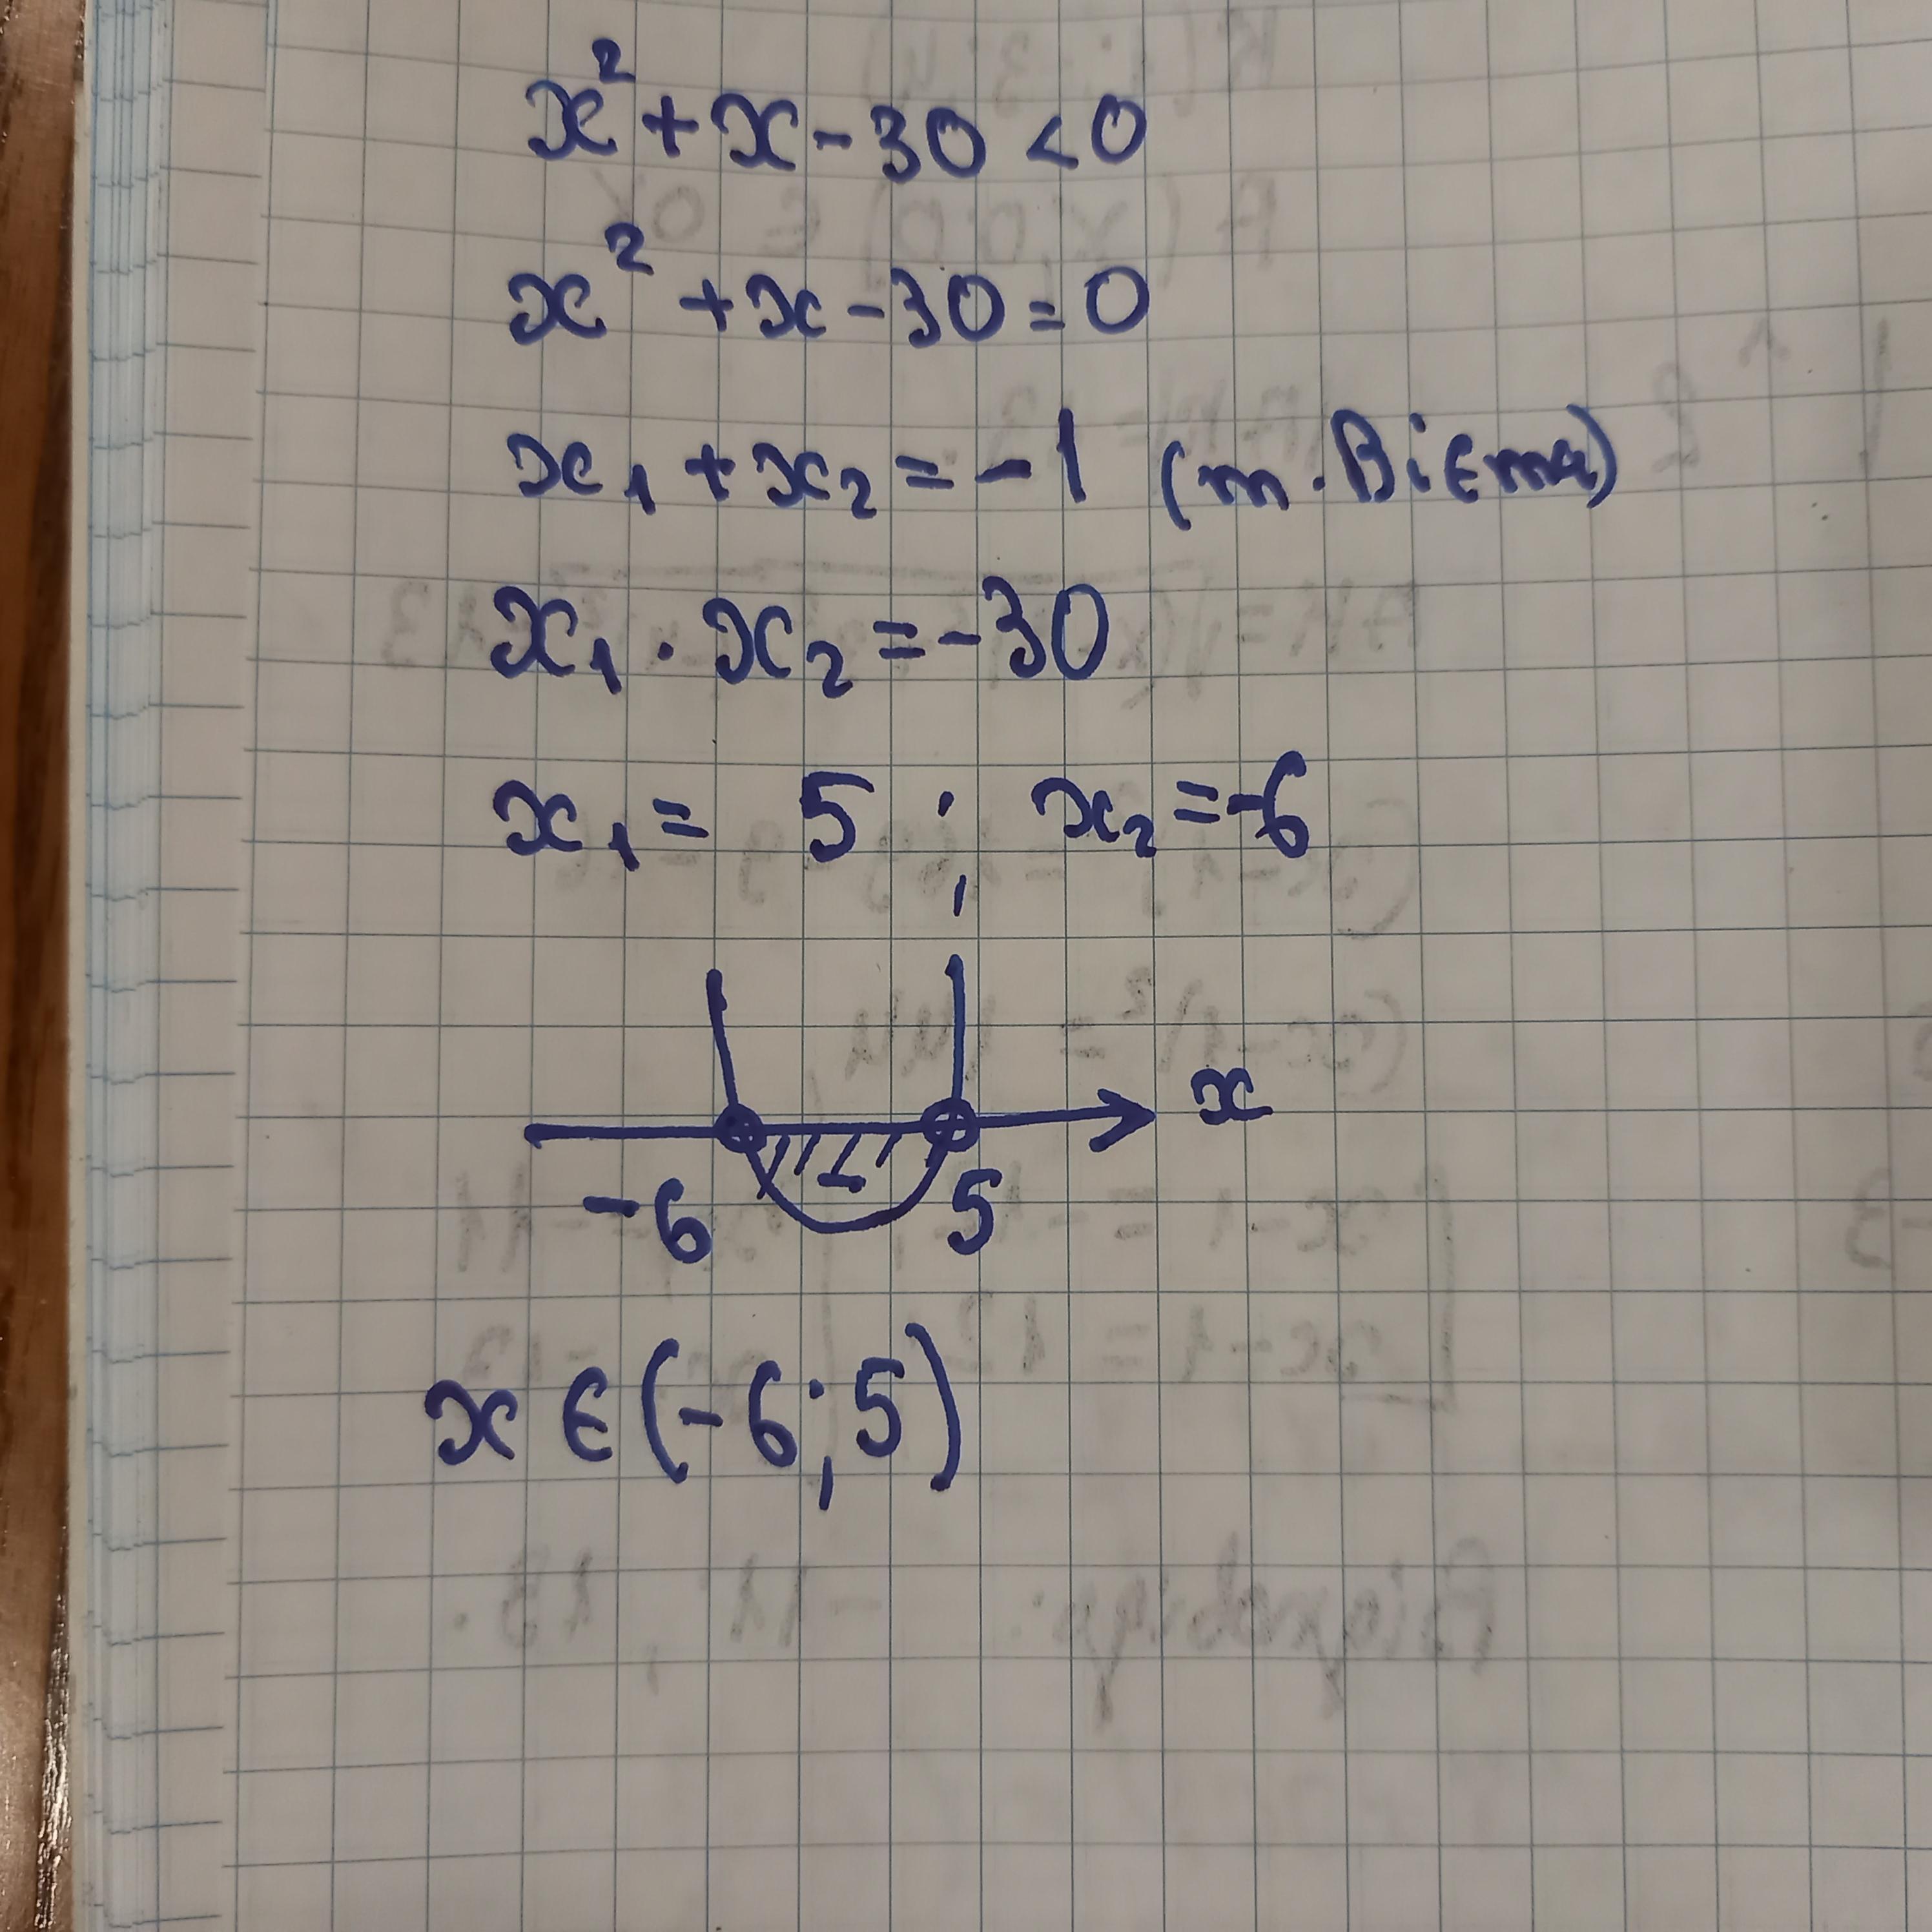 x² + x - 30 < 0
x² + x - 30 = 0
x₁ + x₂ = -1 (т. Вієта)
x₁ · x₂ = -30
x₁ = 5 ; x₂ = -6
x
-6 5
x ∈ (-6; 5)